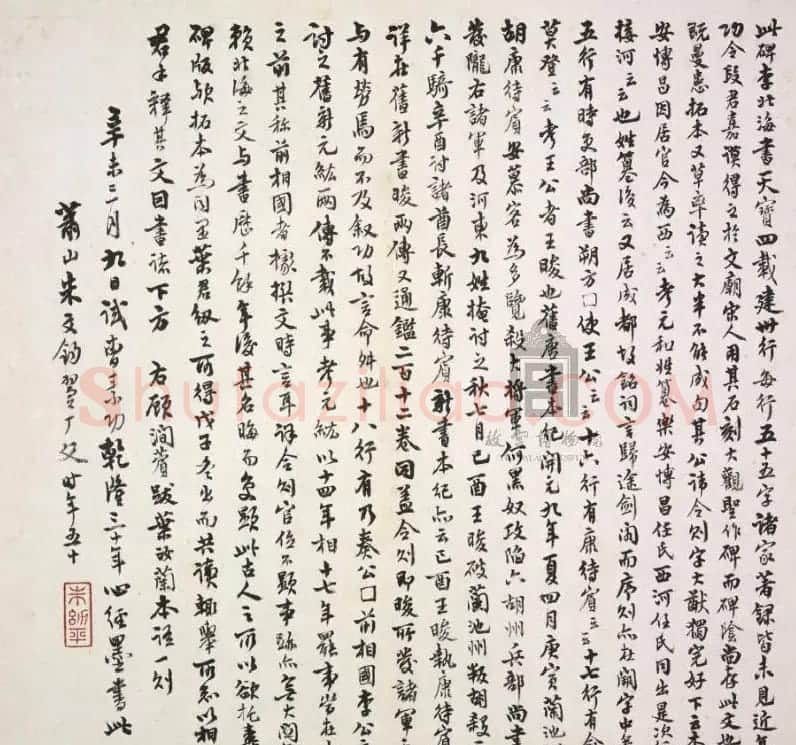 此碑李北海書天寶四載建卅行每行五十五字諸家著錄皆未見近年
功令段君嘉謨得之於文廟宋人用其石刻大觀聖作碑而碑陰尚存此文也
既曼患拓本又草率讀之大半不能成句其公諱令則字大猷獨完好下云本
安博昌因居官今為西云云考元和姓纂樂安博昌任氏西河任氏同出是次
接河云云也姓纂後云又居成都故銘詞言歸途劍閣而序則亦在闕字中矣
五行有時兵部尚書朔方□使王公云云十六行有康待賓云云十七行有命
莫登云云考王公者王晙也舊唐書本紀開元九年夏四月庚寅蘭池
胡康待賓安慕容為多覽殺大將軍何黑奴攻陷六胡州兵部尚書
發隴右諸軍及河東九姓掩討之秋七月己酉王晙破蘭池州叛胡殺
六千騎辛酉討諸酋長斬康待賓新書本紀亦云己酉王晙執康待賓
詳在舊新書晙兩傳又通鑑二百十二卷同蓋令則即晙所發諸軍之
与有勞焉而不及敘功故言命舛也十八行有乃奏公□前相國李公云
討之舊新元紘兩傳不載此事考元紘以十四年相十七年罷事當在
之前其称前相國者據撰文時言耳詳令則官位不顯事跡亦無大關
賴北海之文与書歷千餘年後其名晦而更顯此古人之所以欲托
碑版歟拓本為同里葉君
所得戊子冬出而共讀輒舉所忘以相
君手釋其文因書諸下方　右顧澗薲跋葉
蘭本語一則
辛未三月九日試
乾隆三十年
墨書此
蕭山朱文鈞翼厂父時年五十
朱幼平
故宮博物院
Shufaziliao.COM